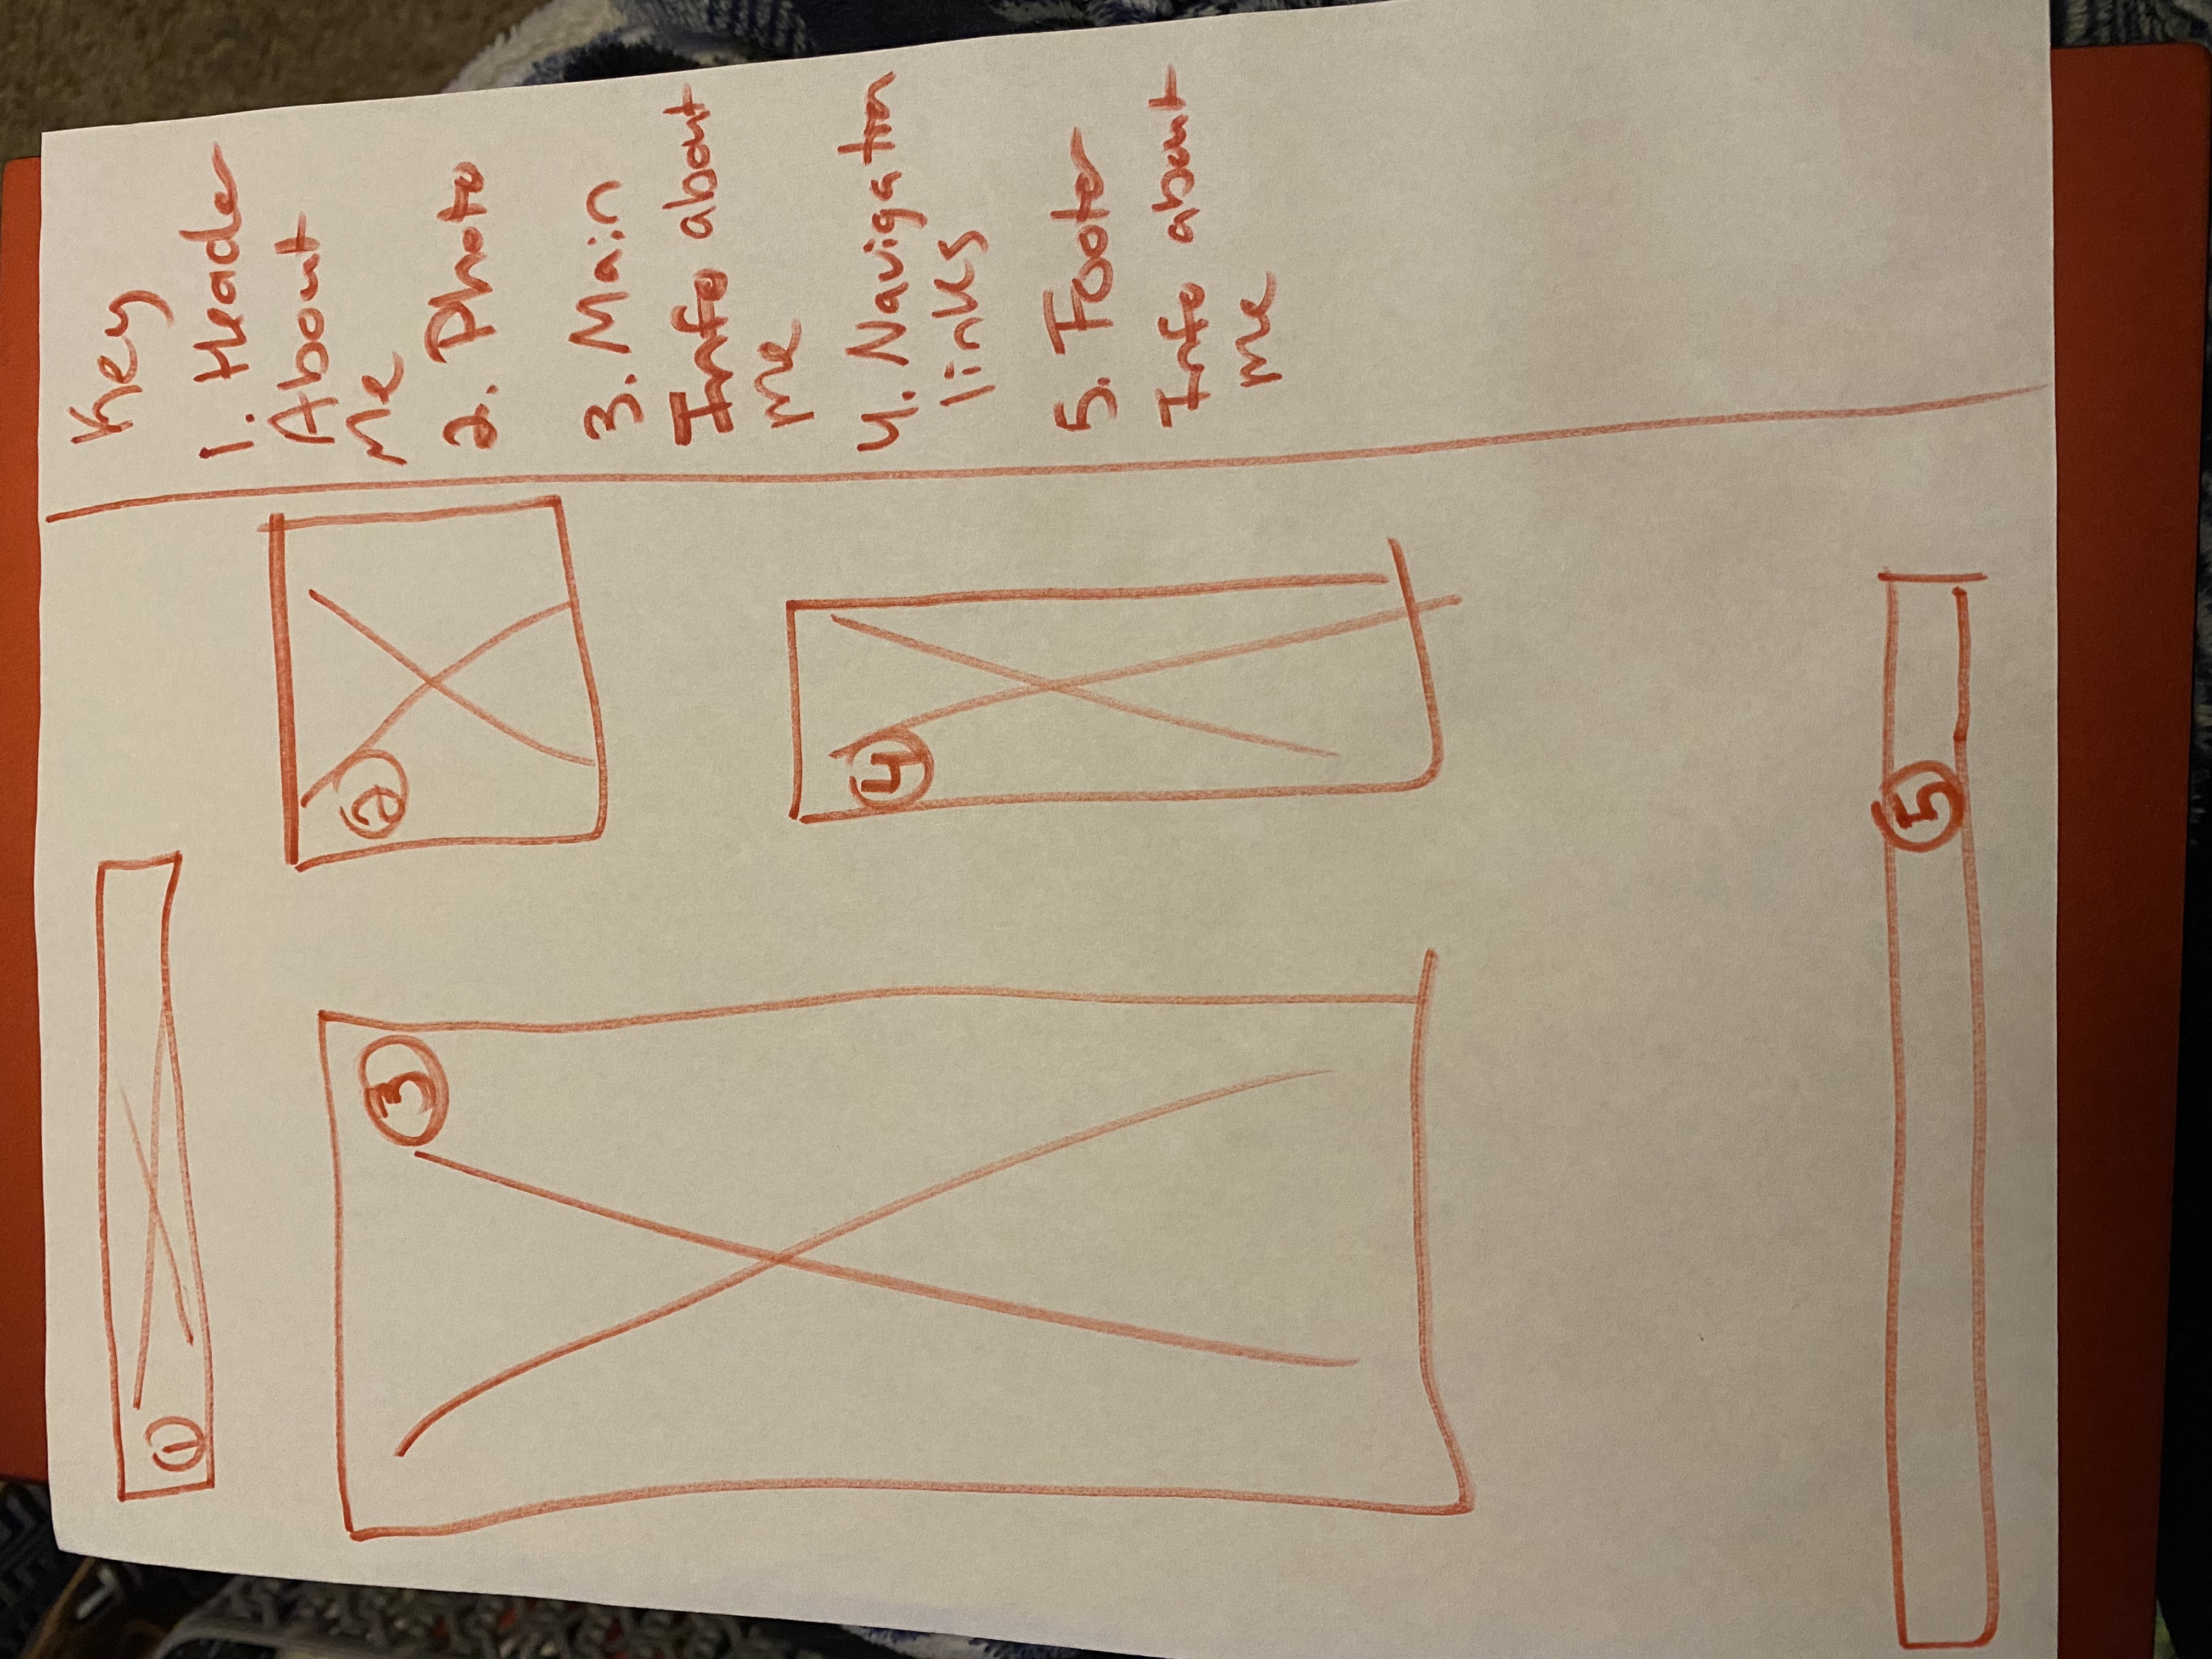 ①
②
③
④
⑤
Key
1. Header
About
Me
2. Photo
3. Main
Info about
me
4. Navigation
links
5. Footer
Info about
me